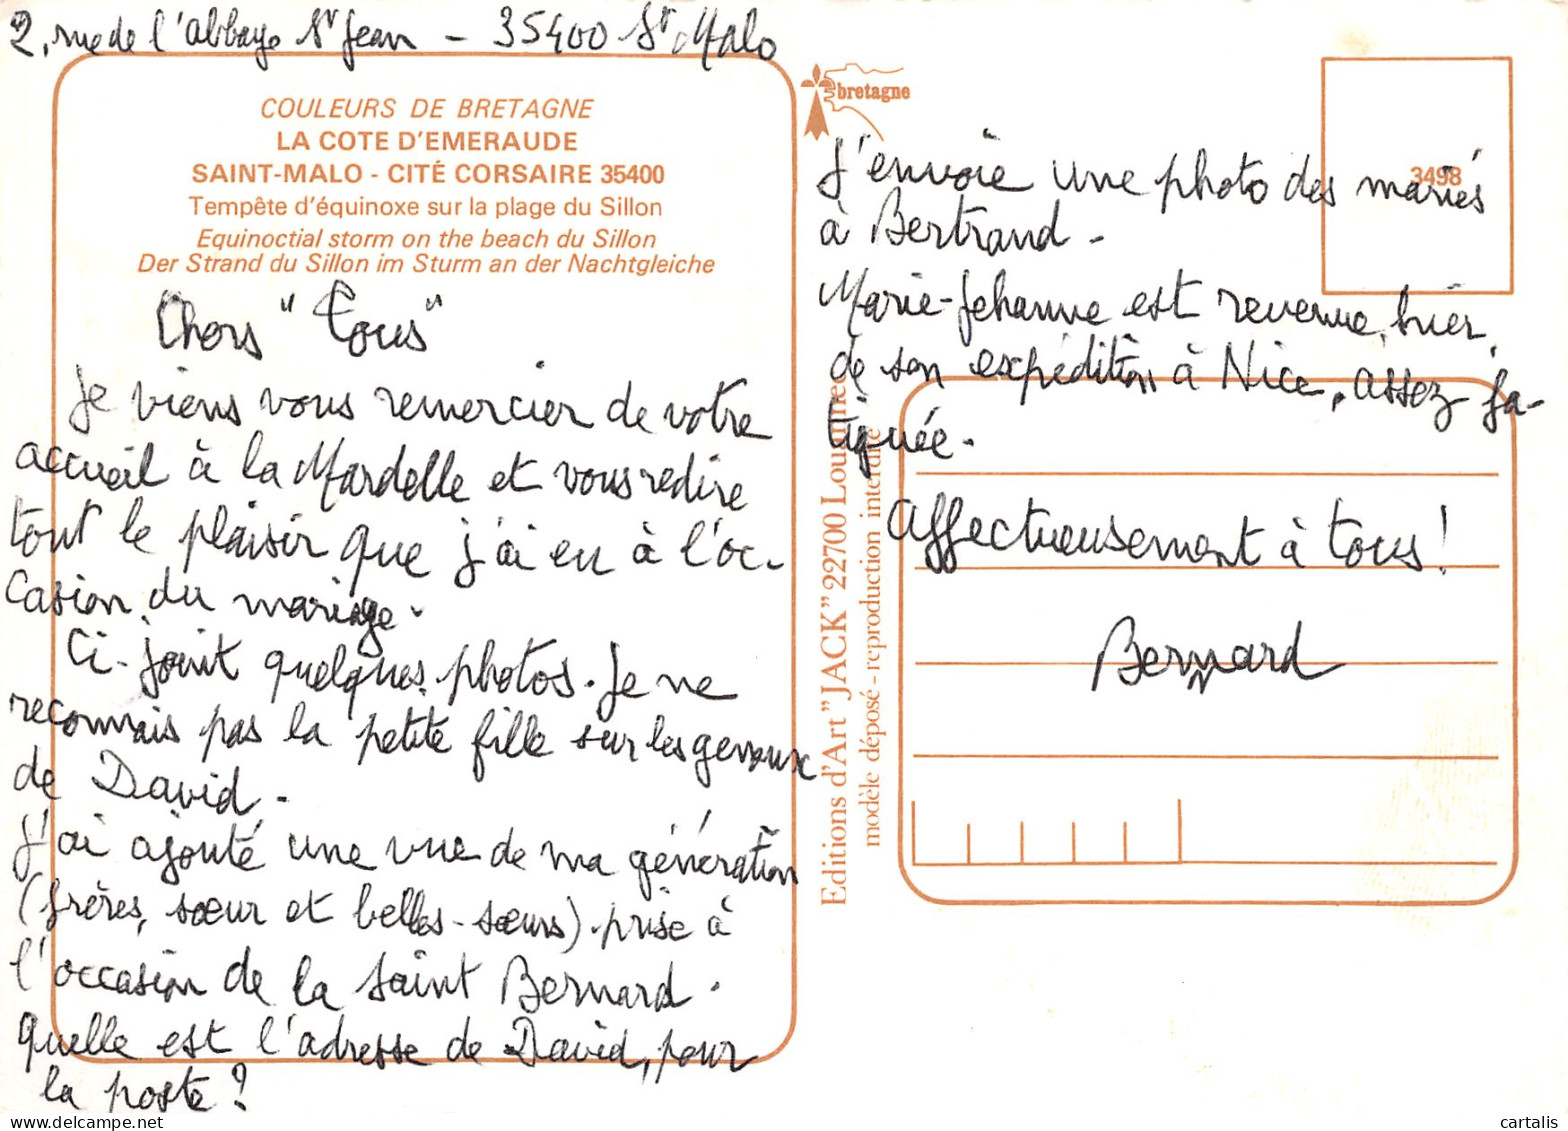 2, rue de l'abbaye St Jean - 35400 St Malo
COULEURS DE BRETAGNE
LA COTE D'EMERAUDE
SAINT-MALO - CITÉ CORSAIRE 35400
Tempête d'équinoxe sur la plage du Sillon
Equinoctial storm on the beach du Sillon
Der Strand du Sillon im Sturm an der Nachtgleiche
Chers "Tous"
Je viens vous remercier de votre
accueil à la Mardelle et vous redire
tout le plaisir que j'ai eu à l'oc-
casion du mariage.
Ci-joint quelques photos. Je ne
reconnais pas la petite fille sur les genoux
de David.
J'ai ajouté une vue de ma génération
(frères, sœur et belles-sœurs) prise à
l'occasion de la Saint Bernard.
Quelle est l'adresse de David, pour
la poste ?
bretagne
3498
J'envoie une photo des mariés
à Bertrand.
Marie-Jehanne est revenue, hier,
de son expédition à Nice, assez fa-
tiguée.
Affectueusement à tous !
Bernard
Editions d'Art "JACK" 22700 Louannec
modèle déposé - reproduction interdite
cartalis